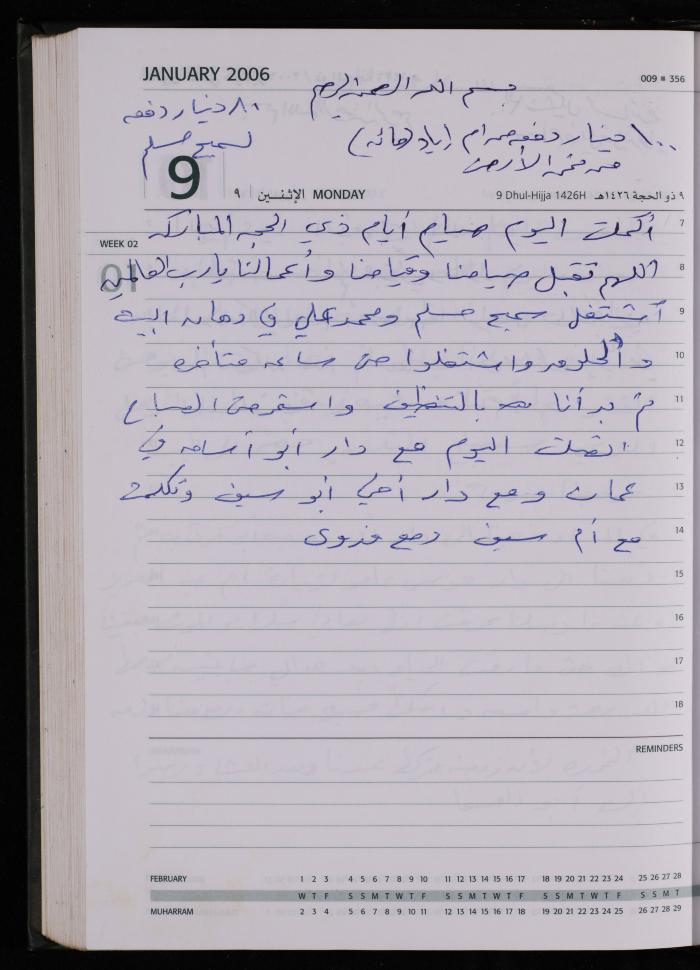 JANUARY 2006
009 ■ 356
بسم الله الرحمن الرحيم
٨٠ دينار دفعه
لسميح مسلم
١٠٠ دينار دفعه من ام إياد (هانه)
من ثمن الأرض
9
٩ الإثنـــين MONDAY
9 Dhul-Hijja 1426H ٩ ذو الحجة ١٤٢٦هـ
WEEK 02
01
7 أكملت اليوم صيام أيام ذي الحجه المباركه
8 اللهم تقبل صيامنا وقيامنا وأعمالنا يارب العالمين
9 أشتغل سميح مسلم ومحمد علي في دهان البيت
10 واشتغلوا حتى ساعه متأخره
11 ثم بدأنا بالتنظيف واستمر حتى الصباح
12 اتصلت اليوم مع دار أبو أسامه في
13 عمان ومع دار أخي أبو سيف وتكلمت
14 مع أم سيف ومع فدوى
15
16
17
18
REMINDERS
FEBRUARY 1 2 3 4 5 6 7 8 9 10 11 12 13 14 15 16 17 18 19 20 21 22 23 24 25 26 27 28
W T F S S M T W T F S S M T W T F S S M T W T F S S M T
MUHARRAM 2 3 4 5 6 7 8 9 10 11 12 13 14 15 16 17 18 19 20 21 22 23 24 25 26 27 28 29